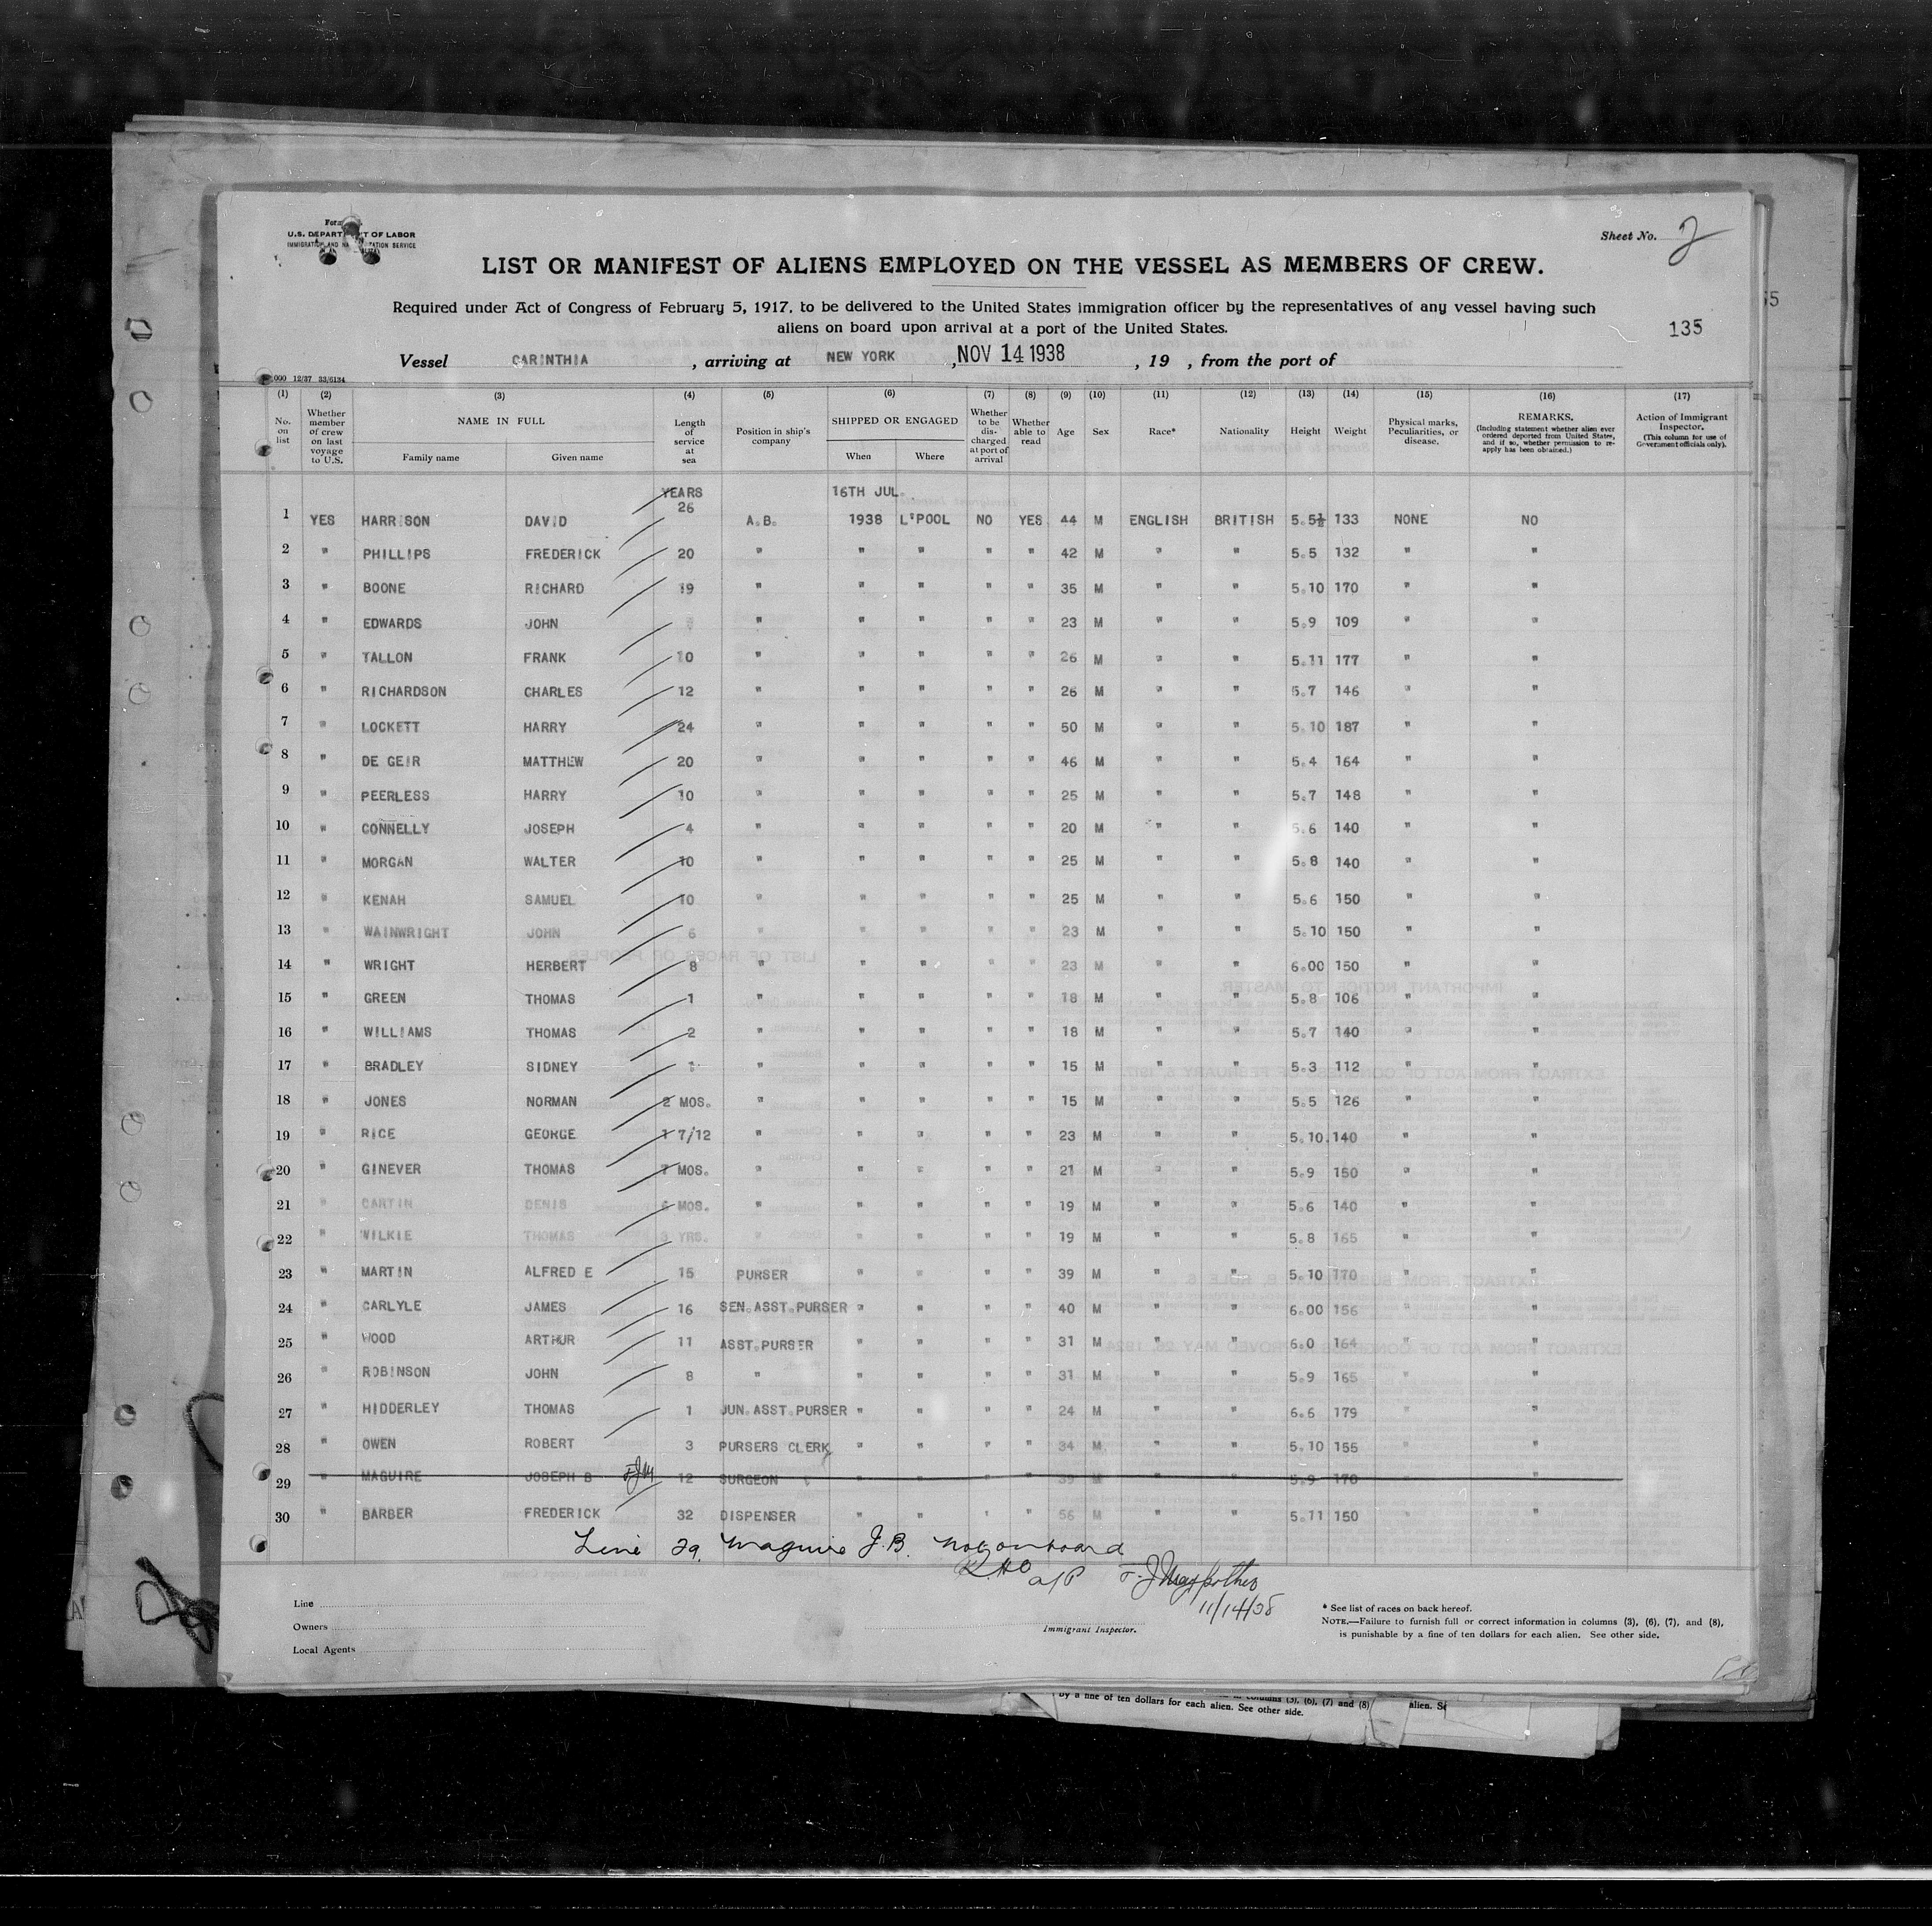 Form
U.S. DEPARTMENT OF LABOR
IMMIGRATION AND NATURALIZATION SERVICE
Sheet No. 2
LIST OR MANIFEST OF ALIENS EMPLOYED ON THE VESSEL AS MEMBERS OF CREW.
Required under Act of Congress of February 5, 1917, to be delivered to the United States immigration officer by the representatives of any vessel having such
aliens on board upon arrival at a port of the United States.
135
Vessel CARINTHIA , arriving at NEW YORK , NOV 14 1938 , 19 , from the port of
000 12/37 33/6134
(1) (2) (3) (4) (5) (6) (7) (8) (9) (10) (11) (12) (13) (14) (15) (16) (17)
No. on list
Whether member of crew on last voyage to U.S.
NAME IN FULL
Family name Given name
Length of service at sea
Position in ship's company
SHIPPED OR ENGAGED
When Where
Whether to be discharged at port of arrival
Whether able to read
Age
Sex
Race*
Nationality
Height
Weight
Physical marks, Peculiarities, or disease.
REMARKS.
(Including statement whether alien ever ordered deported from United States, and if so, whether permission to reapply has been obtained.)
Action of Immigrant Inspector.
(This column for use of Government officials only).
YEARS 16TH JUL.
1 YES HARRISON DAVID 26 A.B. 1938 L'POOL NO YES 44 M ENGLISH BRITISH 5.5½ 133 NONE NO
2 " PHILLIPS FREDERICK 20 " " " " " 42 M " " 5.5 132 " "
3 " BOONE RICHARD 19 " " " " " 35 M " " 5.10 170 " "
4 " EDWARDS JOHN " " " " " 23 M " " 5.9 109 " "
5 " TALLON FRANK 10 " " " " " 26 M " " 5.11 177 " "
6 " RICHARDSON CHARLES 12 " " " " " 26 M " " 5.7 146 " "
7 " LOCKETT HARRY 24 " " " " " 50 M " " 5.10 187 " "
8 " DE GEIR MATTHEW 20 " " " " " 46 M " " 5.4 164 " "
9 " PEERLESS HARRY 10 " " " " " 25 M " " 5.7 148 " "
10 " CONNELLY JOSEPH 4 " " " " " 20 M " " 5.6 140 " "
11 " MORGAN WALTER 10 " " " " " 25 M " " 5.8 140 " "
12 " KENAH SAMUEL 10 " " " " " 25 M " " 5.6 150 " "
13 " WAINWRIGHT JOHN 6 " " " " " 23 M " " 5.10 150 " "
14 " WRIGHT HERBERT 8 " " " " " 23 M " " 6.00 150 " "
15 " GREEN THOMAS 1 " " " " " 18 M " " 5.8 106 " "
16 " WILLIAMS THOMAS 2 " " " " " 18 M " " 5.7 140 " "
17 " BRADLEY SIDNEY " " " " " 15 M " " 5.3 112 " "
18 " JONES NORMAN 2 MOS. " " " " " 15 M " " 5.5 126 " "
19 " RICE GEORGE 1 7/12 " " " " " 23 M " " 5.10 140 " "
20 " GINEVER THOMAS 7 MOS. " " " " " 21 M " " 5.9 150 " "
21 " CARTIN DENIS 6 MOS. " " " " " 19 M " " 5.6 140 " "
22 " WILKIE THOMAS 3 YRS. " " " " " 19 M " " 5.8 165 " "
23 " MARTIN ALFRED E 15 PURSER " " " " 39 M " " 5.10 170 " "
24 " CARLYLE JAMES 16 SEN.ASST.PURSER " " " " 40 M " " 6.00 156 " "
25 " WOOD ARTHUR 11 ASST.PURSER " " " " 31 M " " 6.0 164 " "
26 " ROBINSON JOHN 8 " " " " " 31 M " " 5.9 165 " "
27 " HIDDERLEY THOMAS 1 JUN.ASST.PURSER " " " " 24 M " " 6.6 179 " "
28 " OWEN ROBERT 3 PURSERS CLERK " " " " 34 M " " 5.10 155 " "
29 " MAGUIRE JOSEPH B FJM 12 SURGEON " " " " 39 M " " 5.9 170 " "
30 " BARBER FREDERICK 32 DISPENSER " " " " 56 M " " 5.11 150 " "
Line 29. Maguire J.B. not on board
11/14/38
Line
Owners
Local Agents
Immigrant Inspector.
* See list of races on back hereof.
NOTE.—Failure to furnish full or correct information in columns (3), (6), (7), and (8),
is punishable by a fine of ten dollars for each alien. See other side.
columns (3), (6), (7) and (8)
by a fine of ten dollars for each alien. See other side.
alien. Se